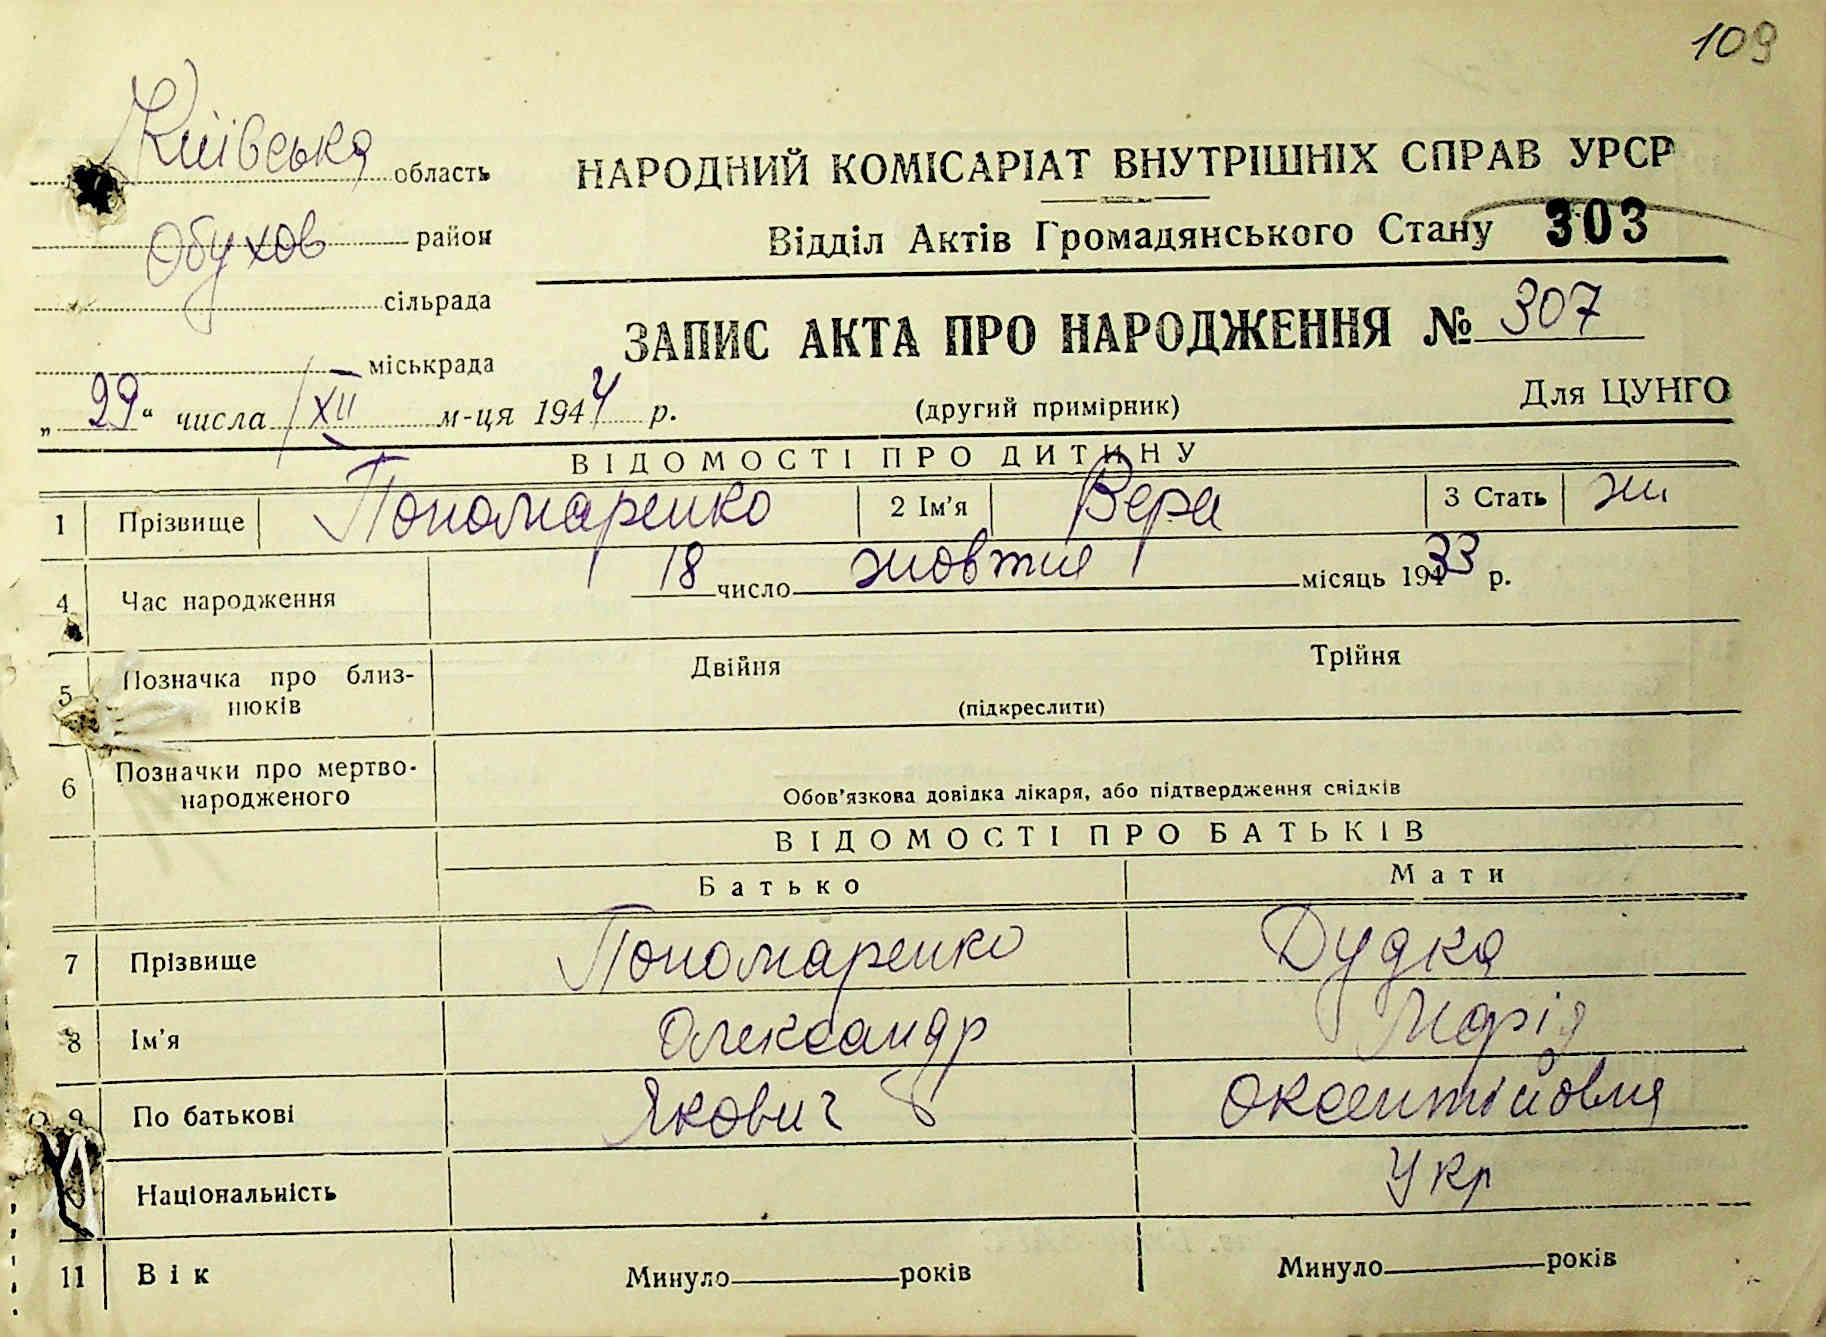 109
Київська область
Обухов район
сільрада
міськрада
„29“ числа XII м-ця 1944 р.
НАРОДНИЙ КОМІСАРІАТ ВНУТРІШНІХ СПРАВ УРСР
Відділ Актів Громадянського Стану 303
ЗАПИС АКТА ПРО НАРОДЖЕННЯ № 307
(другий примірник)
Для ЦУНГО
ВІДОМОСТІ ПРО ДИТИНУ
1 Прізвище Пономаренко 2 Ім'я Вера 3 Стать жи
4 Час народження 18 число жовтня місяць 1933 р.
5 Позначка про близнюків Двійня Трійня
(підкреслити)
6 Позначки про мертвонародженого Обов'язкова довідка лікаря, або підтвердження свідків
ВІДОМОСТІ ПРО БАТЬКІВ
Батько Мати
7 Прізвище Пономаренко Дудка
8 Ім'я Олександр Марія
9 По батькові Якович Оксентійовня
Національність Укр
11 Вік Минуло років Минуло років